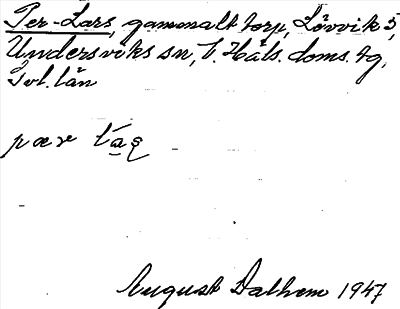 Per-Lars, gammalt torp, Lövvik 5,
Undersviks sn, V. Häls. doms. tg,
Gvl. län
pær
August Dalhem 1947